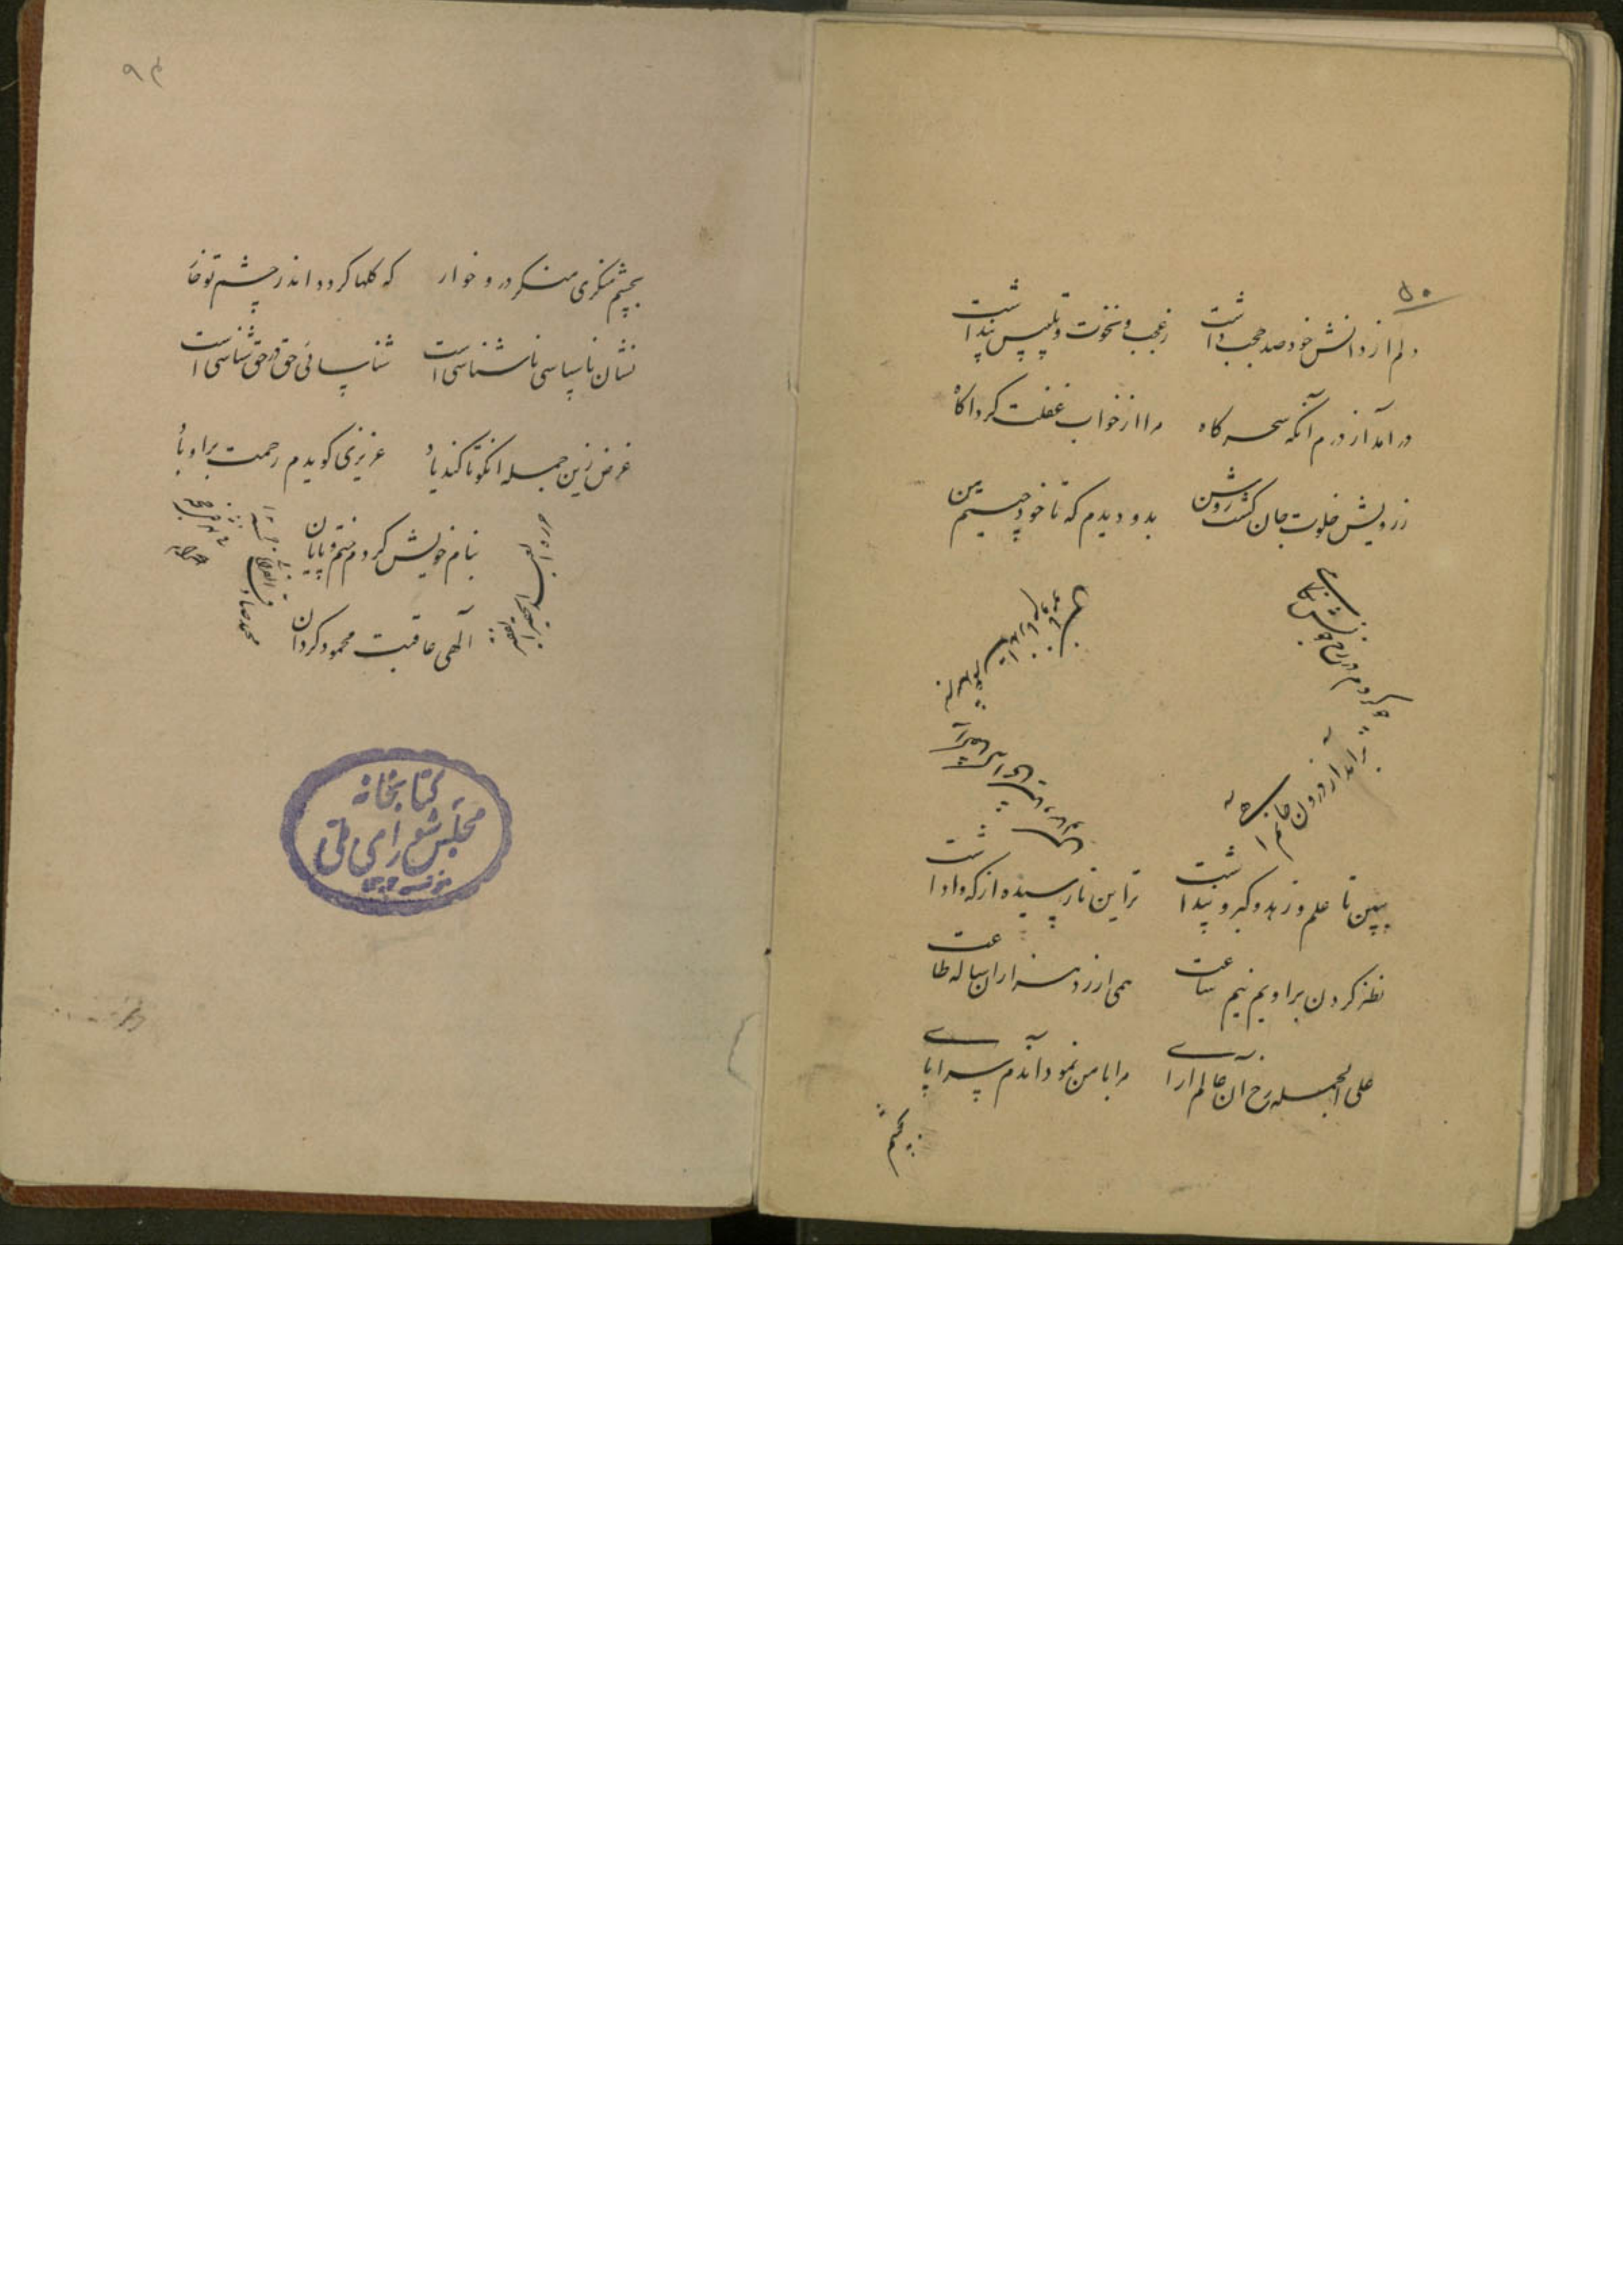 ۵۰
دلم از دانش خود صد حجب داشت زعجب و نخوت و تلبیس پنداشت
درامد از درم آنکه سحر کاه مرا از خواب غفلت کرد اکاه
ز رویش خلوت جان کشت روشن بدو دیدم که تا خود چیستم من
چو کردم در رخ خوبش نکاهی
برامد از درون جانم آهی
ببین تا علم و زهد و کبر و پنداشت ترا این نارسیده از که وا داشت
نظر کردن برویم نیم ساعت همی ارزد هزاران ساله طاعت
علی الجمله رخ آن عالم ارای مرا با من نمود آندم سراپای
بچشم
۹۴
بچشم منکری منکر در و خوار که کلها کردد اندر چشم تو خار
نشان ناسپاسی ناشناسی است شناسائی حق در حق شناسی است
غرض زین جمله انکو تا کند یاد عزیزی کویدم رحمت براو باد
بنام خویش کردم ختم و پایان
آلهی عاقبت محمود کردان
کتابخانه
مجلس شورای ملی